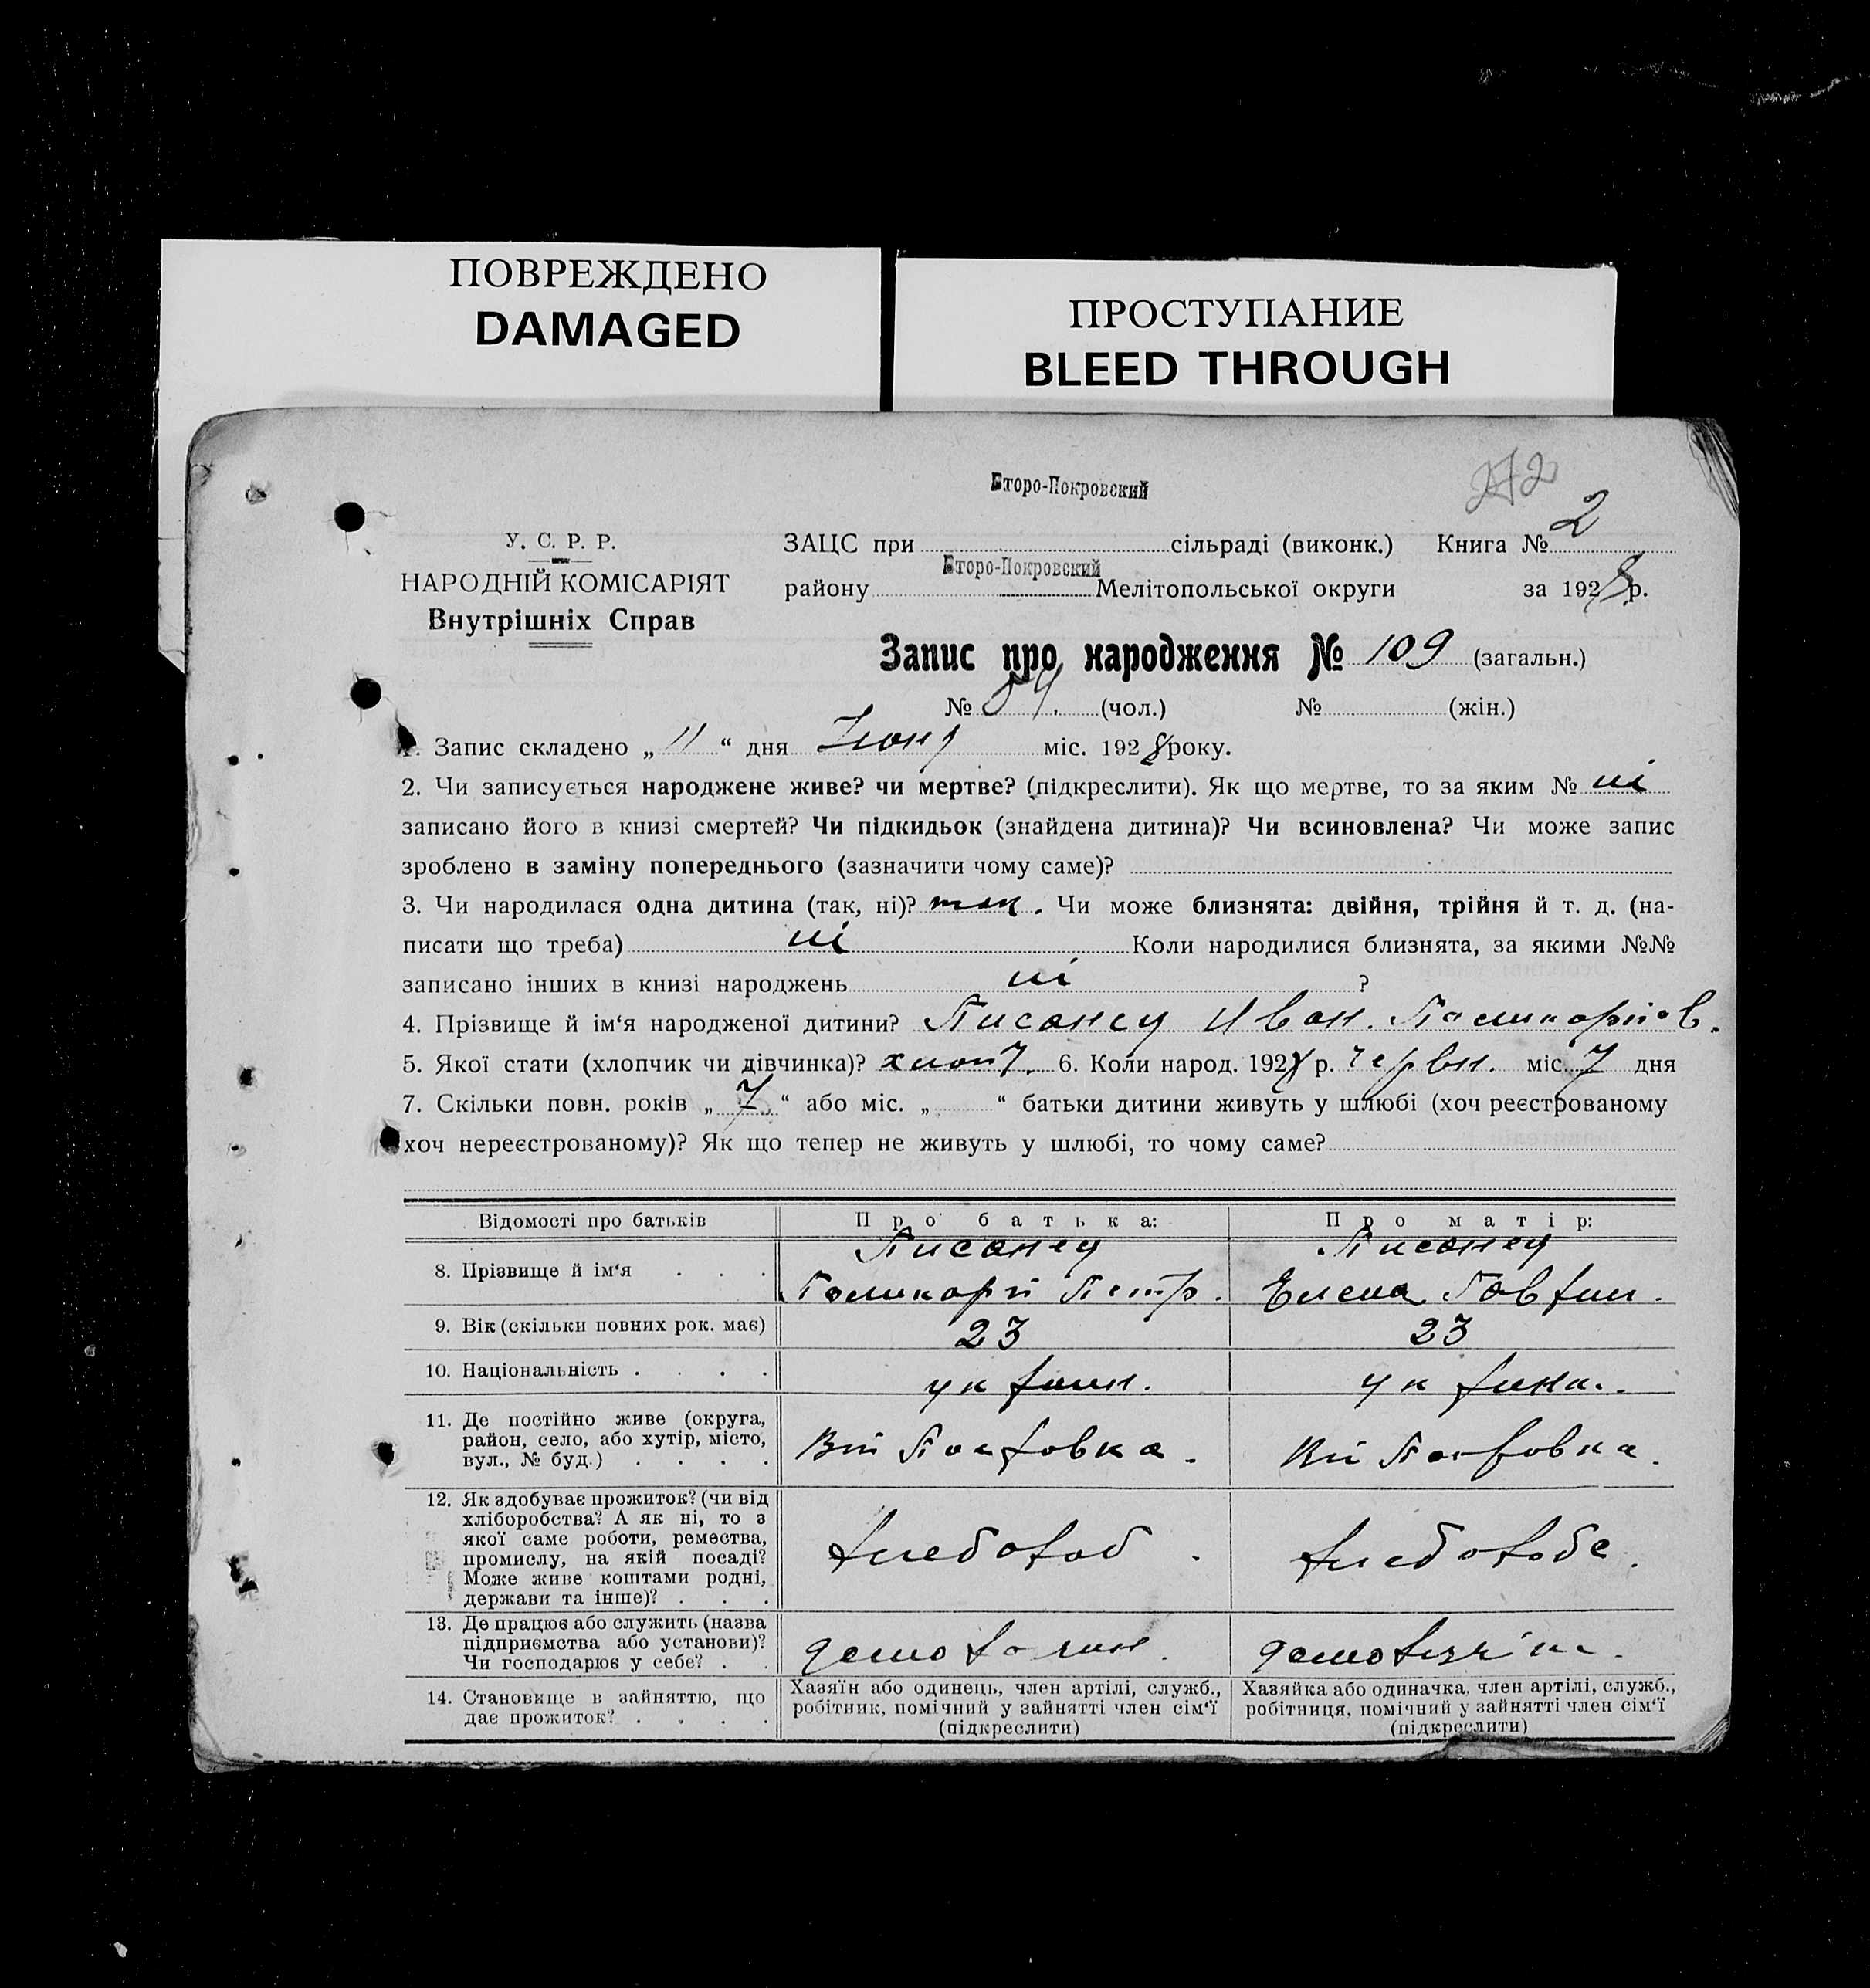 ПОВРЕЖДЕНО
DAMAGED
ПРОСТУПАНИЕ
BLEED THROUGH
272
Второ-Покровский
У. С. Р. Р.
НАРОДНІЙ КОМІСАРІЯТ
Внутрішніх Справ
ЗАЦС при сільраді (виконк.) Книга № 2
району Второ-Покровский Мелітопольської округи за 1928 р.
Запис про народження № 109 (загальн.)
№ 54. (чол.) № (жін.)
1. Запис складено „ 11 “ дня міс. 1928 року.
2. Чи записується народжене живе? чи мертве? (підкреслити). Як що мертве, то за яким № ні
записано його в книзі смертей? Чи підкидьок (знайдена дитина)? Чи всиновлена? Чи може запис
зроблено в заміну попереднього (зазначити чому саме)?
3. Чи народилася одна дитина (так, ні)? так. Чи може близнята: двійня, трійня й т. д. (на-
писати що треба) ні Коли народилися близнята, за якими №№
записано інших в книзі народжень ні ?
4. Прізвище й ім‘я народженої дитини? Писанец Иван.
5. Якої стати (хлопчик чи дівчинка)? хлопч. 6. Коли народ. 1928 р. червн. міс. 7 дня
7. Скільки повн. років „ 7 “ або міс. „ “ батьки дитини живуть у шлюбі (хоч реєстрованому
хоч нереєстрованому)? Як що тепер не живуть у шлюбі, то чому саме?
Відомості про батьків Про батька: Про матір:
8. Прізвище й ім‘я . . . Писанец Поликарп Петр. Писанец Елена Гаврил.
9. Вік (скільки повних рок. має) 23 23
10. Національність . . . . украин. украин.
11. Де постійно живе (округа,
район, село, або хутір, місто,
вул., № буд.) . . . . Покровка. Покровка.
12. Як здобуває прожиток? (чи від
хліборобства? А як ні, то з
якої саме роботи, ремества,
промислу, на якій посаді?
Може живе коштами родні,
держави та інше)? . . . хлебороб. хлебороб
13. Де працює або служить (назва
підприємства або установи)?
Чи господарює у себе? . .
14. Становище в зайняттю, що
дає прожиток? . . . .
Хазяїн або одинець, член артілі, служб.,
робітник, помічний у зайнятті член сім‘ї
(підкреслити)
Хазяйка або одиначка, член артілі, служб.,
робітниця, помічний у зайнятті член сім‘ї
(підкреслити)